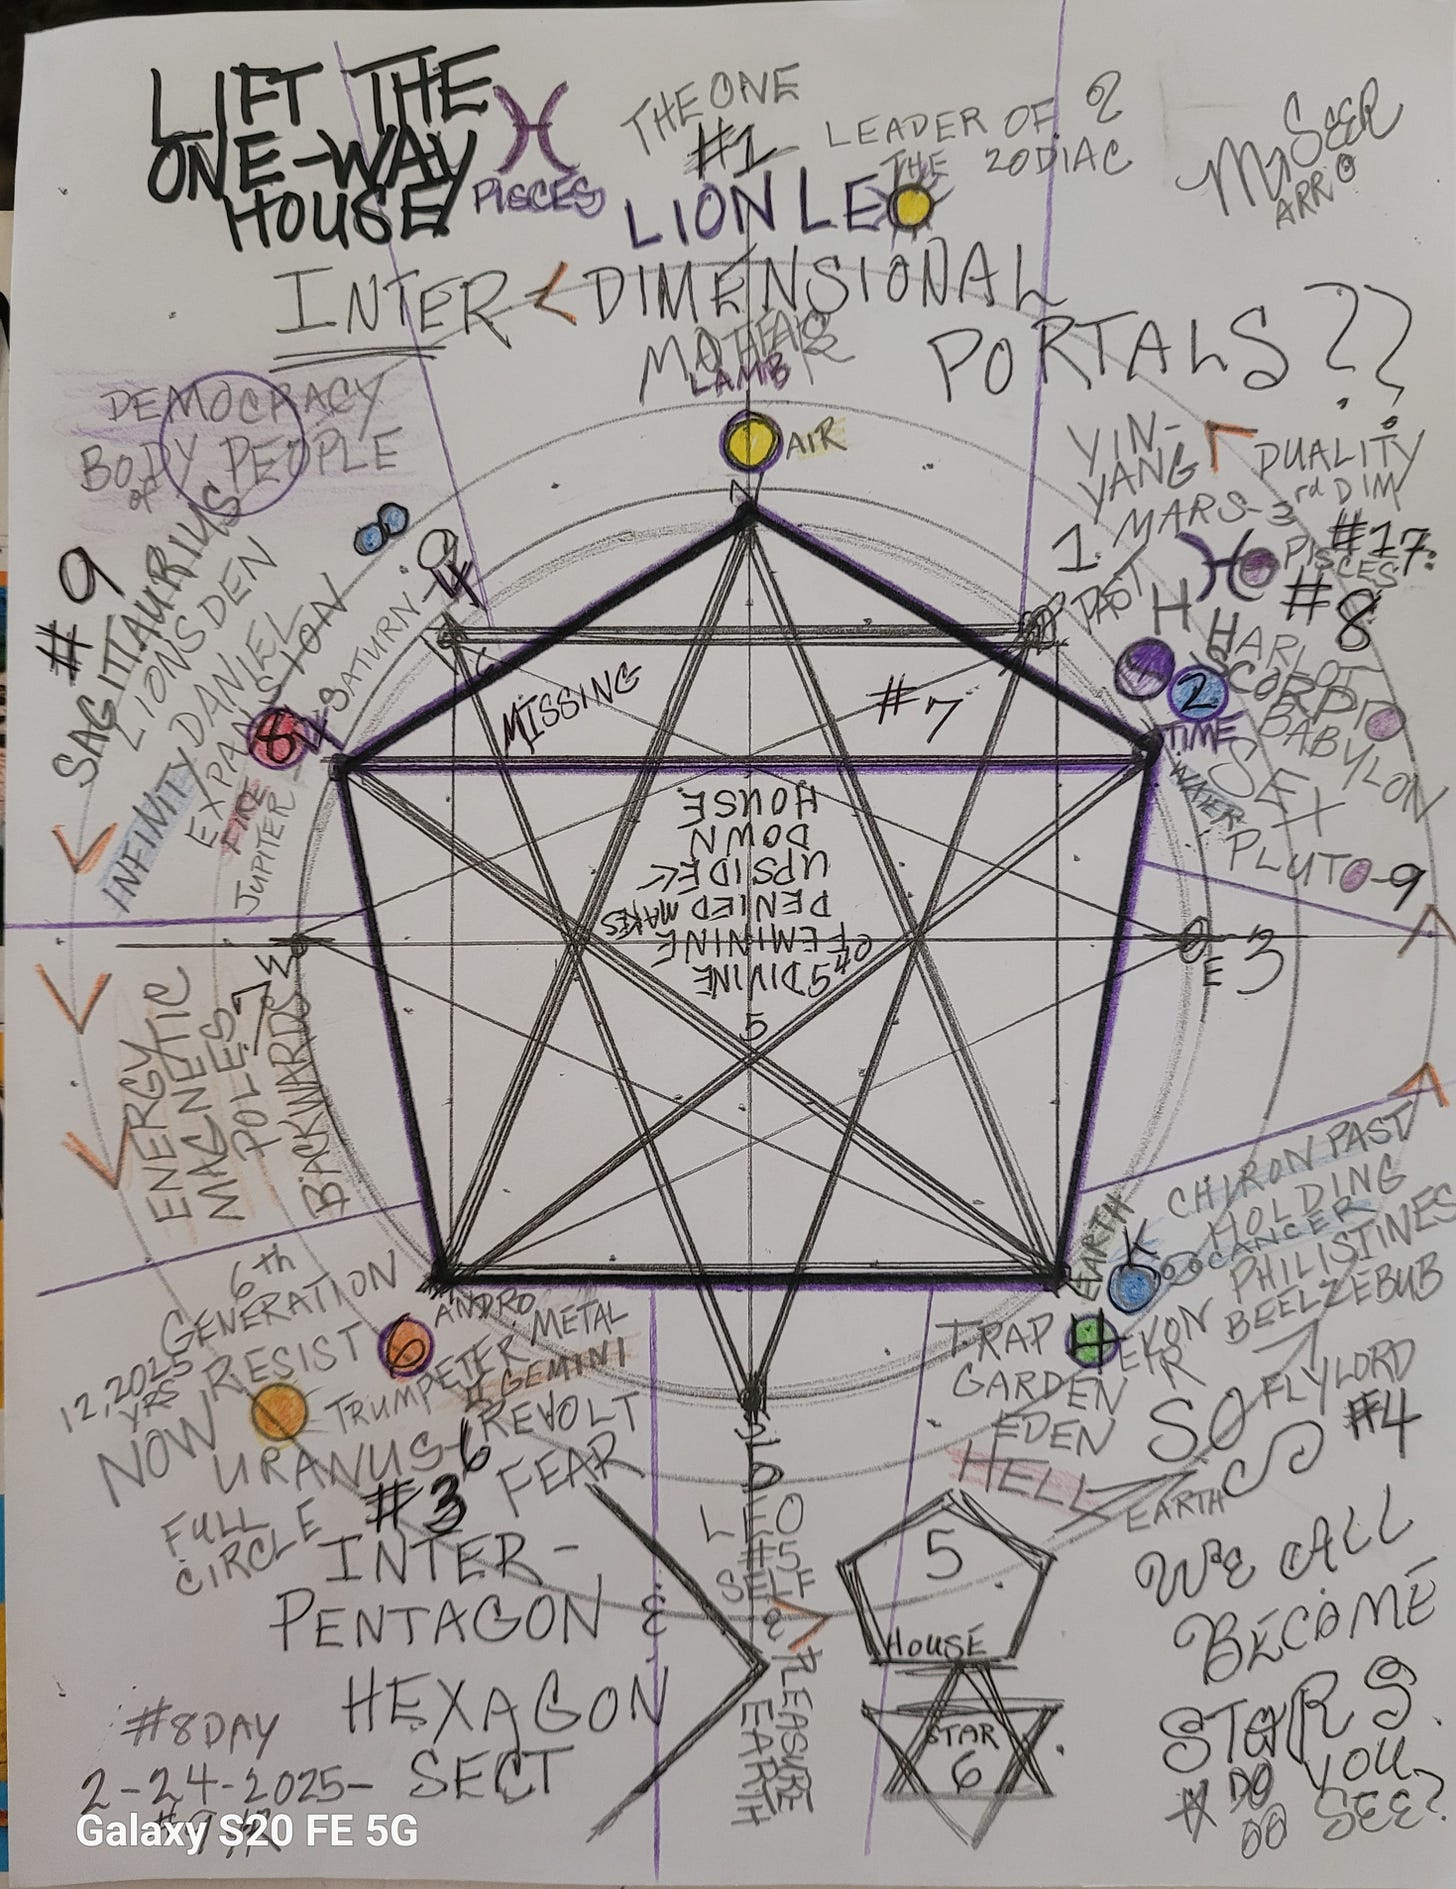 LIFT THE
ONE-WAY
HOUSE
PISCES
THE ONE
#1
LION LEO
LEADER OF
THE ZODIAC
Mr SEER
ARRO
INTER < DIMENSIONAL
PORTALS??
LAMB
AIR
N
DEMOCRACY
BODY PEOPLE
of
#9
SAGITTAURIUS
LIONS DEN
DANIEL
INFINITY
EXPANSION
FIRE
JUPITER
SATURN
8
YIN-
YANG
DUALITY
3rd DIM
1. MARS-
#17.
PISCES
PAST
#8
H HARLOT
SCORPIO
BABYLON
2
TIME
SEX
WATER
PLUTO-9
MISSING
#7
HOUSE
DOWN
UPSIDE
DENIED MAKES
FEMININE
DIVINE
5
E 3
W
ENERGY
ENERGETIC
MAGNETIC
POLES
BACKWARDS
6th
GENERATION
RESIST
12,2025
YRS
NOW
URANUS-6
6
ANDRO
METAL
TRUMPETER
GEMINI
REVOLT
FEAR
#3
FULL
CIRCLE
EARTH
K
CHIRON PAST
HOLDING
CANCER
PHILISTINES
BEELZEBUB
TRAP
GARDEN
EDEN
HELL
SO FLYLORD
#4
EARTH
LEO
#5
SELF
&
PLEASURE
EARTH
INTER-
PENTAGON &
HEXAGON
SECT
#8DAY
2-24-2025-
5
HOUSE
STAR
6
WE ALL
BECOME
STARS
DO YOU
SEE?
Galaxy S20 FE 5G